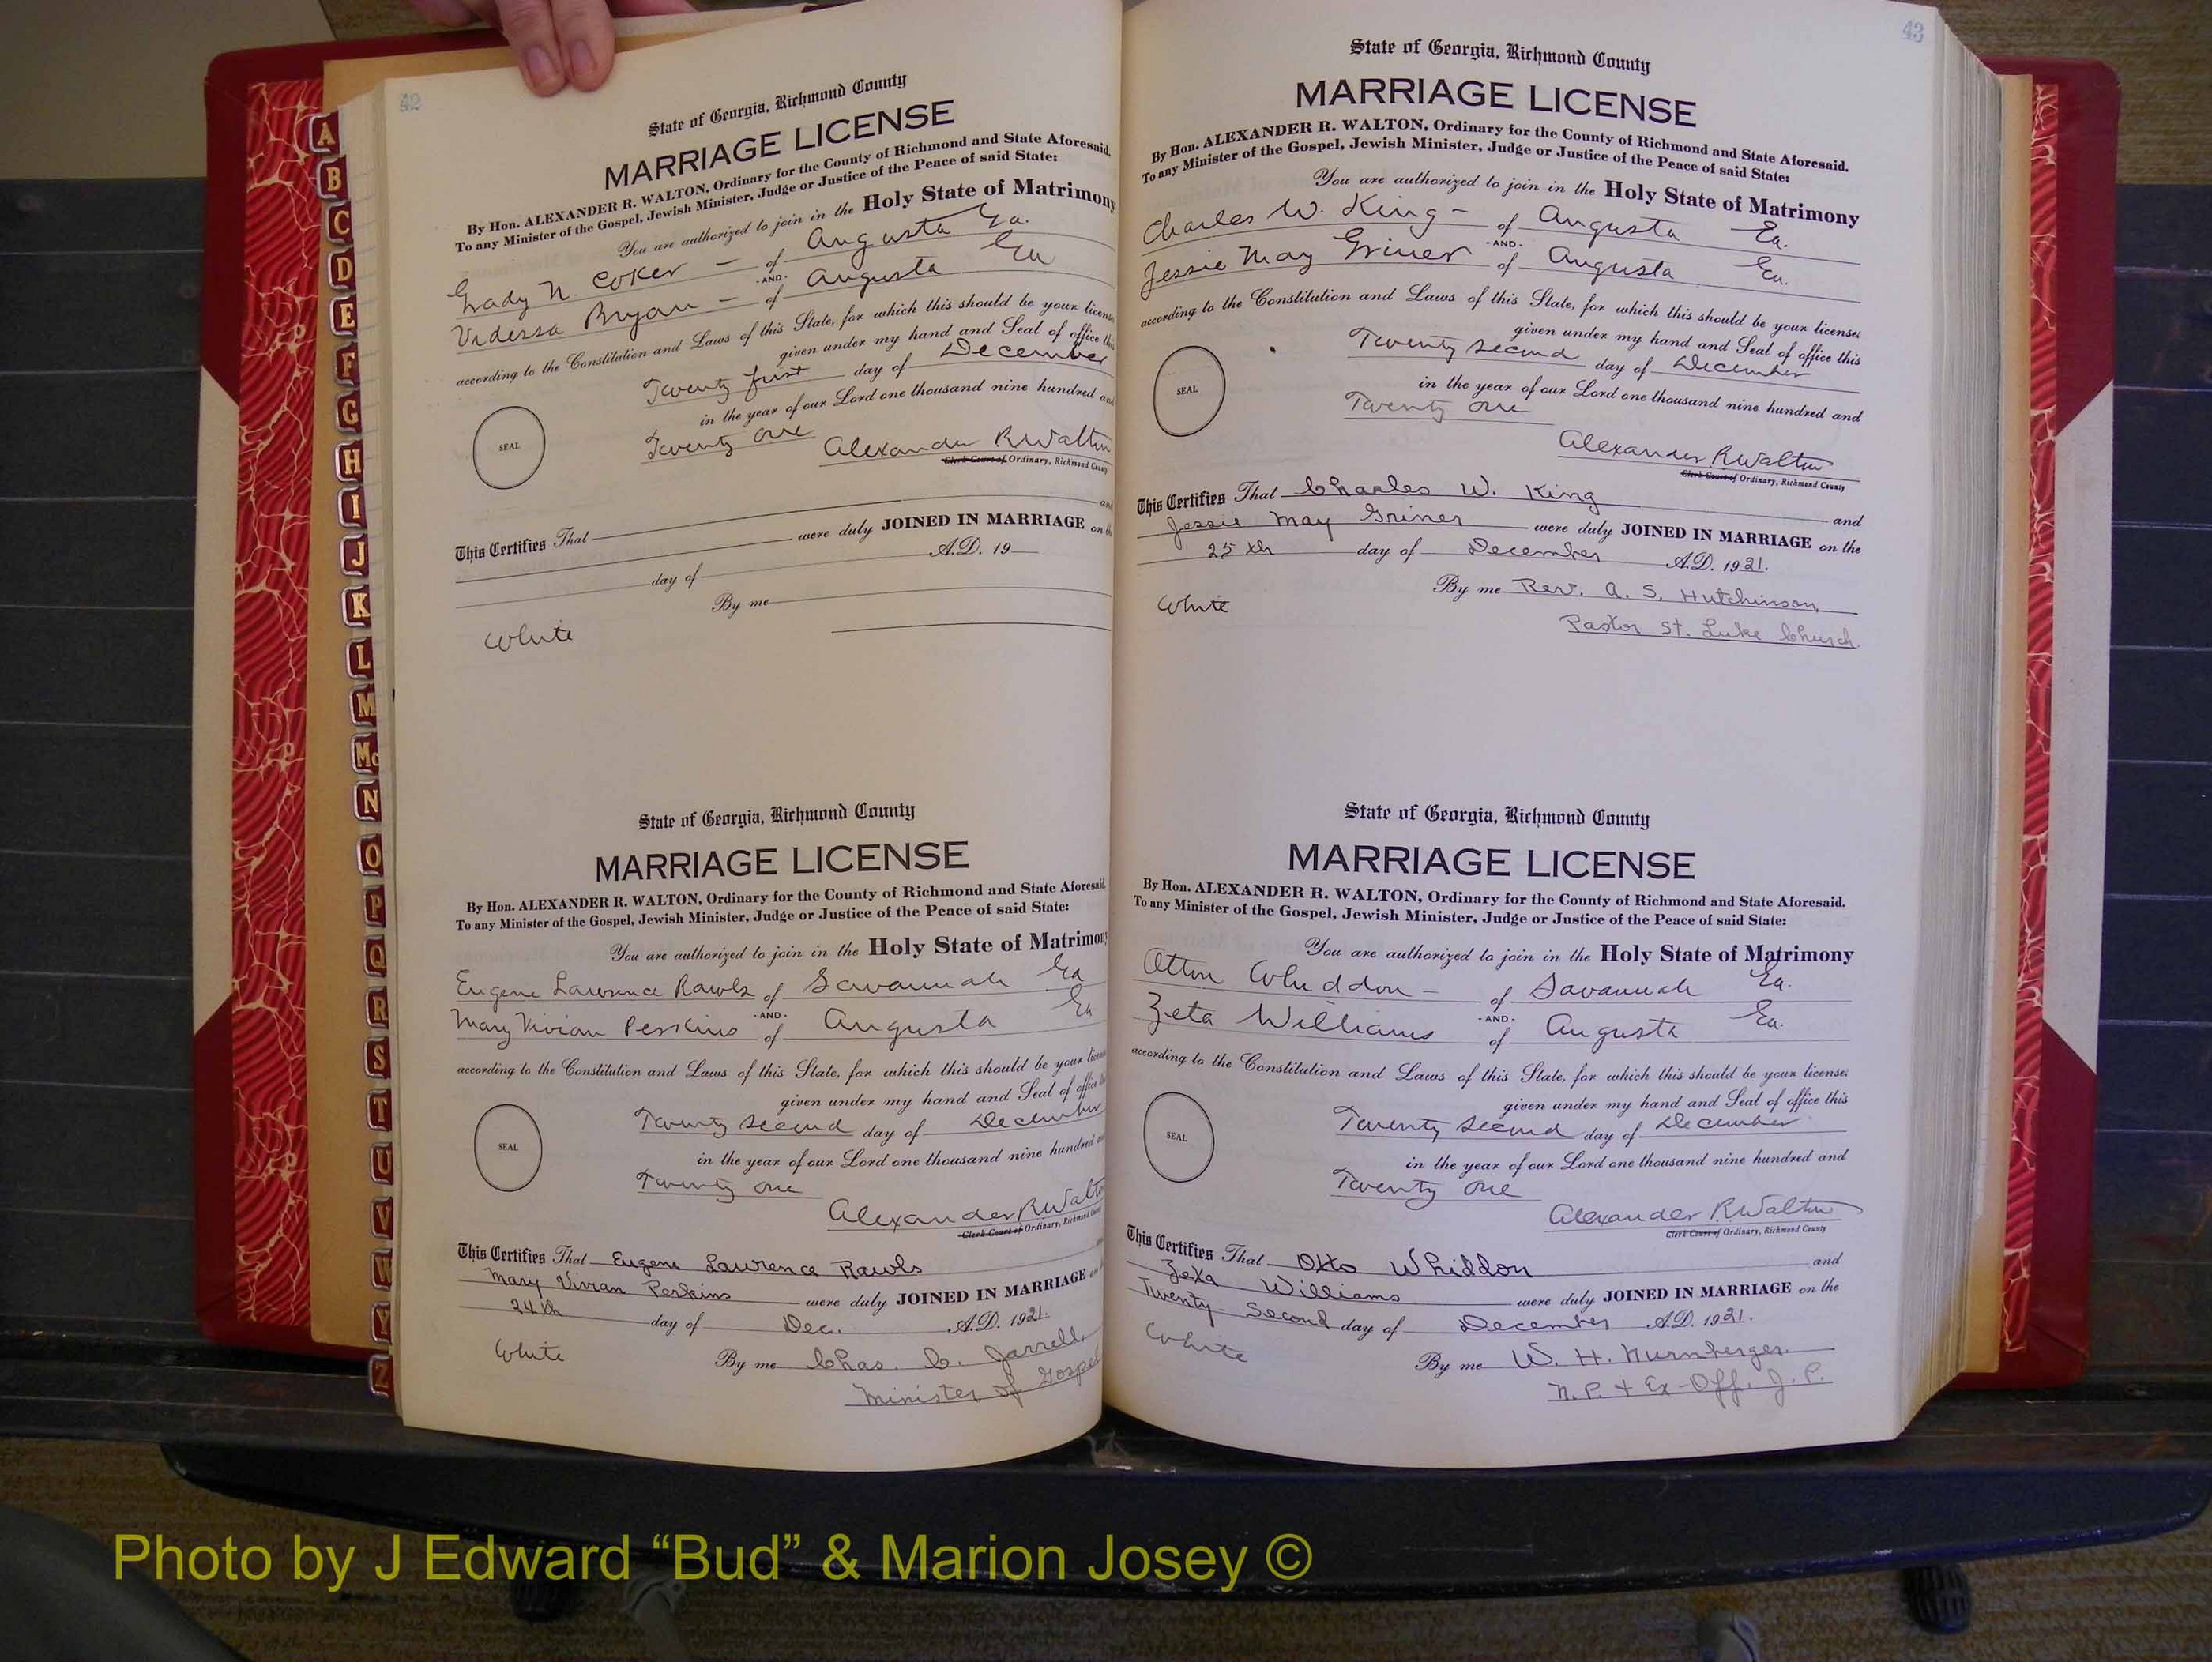 42
State of Georgia, Richmond County
MARRIAGE LICENSE
By Hon. ALEXANDER R. WALTON, Ordinary for the County of Richmond and State Aforesaid.
To any Minister of the Gospel, Jewish Minister, Judge or Justice of the Peace of said State:
You are authorized to join in the Holy State of Matrimony
Grady N. Coker – of Augusta Ga.
-AND-
Bryan – of Augusta Ga
according to the Constitution and Laws of this State, for which this should be your license
given under my hand and Seal of office this
Twenty first day of December
in the year of our Lord one thousand nine hundred and
Twenty one
SEAL
Alexander R Walton
Clerk Court of Ordinary, Richmond County
This Certifies That and
were duly JOINED IN MARRIAGE on the
day of A.D. 19
By me
White
State of Georgia, Richmond County
MARRIAGE LICENSE
By Hon. ALEXANDER R. WALTON, Ordinary for the County of Richmond and State Aforesaid.
To any Minister of the Gospel, Jewish Minister, Judge or Justice of the Peace of said State:
You are authorized to join in the Holy State of Matrimony
Eugene Lawrence Rawls of Savannah Ga
-AND-
Mary Vivian Perkins of Augusta Ga
according to the Constitution and Laws of this State, for which this should be your license
given under my hand and Seal of office this
Twenty second day of December
in the year of our Lord one thousand nine hundred and
Twenty one
SEAL
Alexander R Walton
Clerk Court of Ordinary, Richmond County
This Certifies That Eugene Lawrence Rawls
Mary Vivian Perkins were duly JOINED IN MARRIAGE on
24th day of Dec. A.D. 1921.
White
By me Chas. C. Jarrell,
Minister of Gospel
43
State of Georgia, Richmond County
MARRIAGE LICENSE
By Hon. ALEXANDER R. WALTON, Ordinary for the County of Richmond and State Aforesaid.
To any Minister of the Gospel, Jewish Minister, Judge or Justice of the Peace of said State:
You are authorized to join in the Holy State of Matrimony
Charles W. King – of Augusta Ga.
-AND-
Jessie May Griner of Augusta Ga.
according to the Constitution and Laws of this State, for which this should be your license;
given under my hand and Seal of office this
Twenty second day of December
in the year of our Lord one thousand nine hundred and
Twenty one
SEAL
Alexander R Walton
Clerk Court of Ordinary, Richmond County
This Certifies That Charles W. King and
Jessie May Griner were duly JOINED IN MARRIAGE on the
25th day of December A.D. 1921.
By me Rev. A. S. Hutchinson,
White
Pastor St. Luke Church.
State of Georgia, Richmond County
MARRIAGE LICENSE
By Hon. ALEXANDER R. WALTON, Ordinary for the County of Richmond and State Aforesaid.
To any Minister of the Gospel, Jewish Minister, Judge or Justice of the Peace of said State:
You are authorized to join in the Holy State of Matrimony
Whiddon – of Savannah Ga.
-AND-
Zeta Williams of Augusta Ga.
according to the Constitution and Laws of this State, for which this should be your license;
given under my hand and Seal of office this
Twenty second day of December
in the year of our Lord one thousand nine hundred and
Twenty one
SEAL
Alexander R Walton
Clerk Court of Ordinary, Richmond County
This Certifies That Otto Whiddon and
Zeta Williams were duly JOINED IN MARRIAGE on the
Twenty-Second day of December A.D. 1921.
White
By me W. H. Nurnberger.
N. P. + Ex-Off. J. P.
A
B
C
D
E
F
G
H
I
J
K
L
M
Mc
N
O
P
Q
R
S
T
U
V
W
Y
Z
Photo by J Edward “Bud” & Marion Josey ©